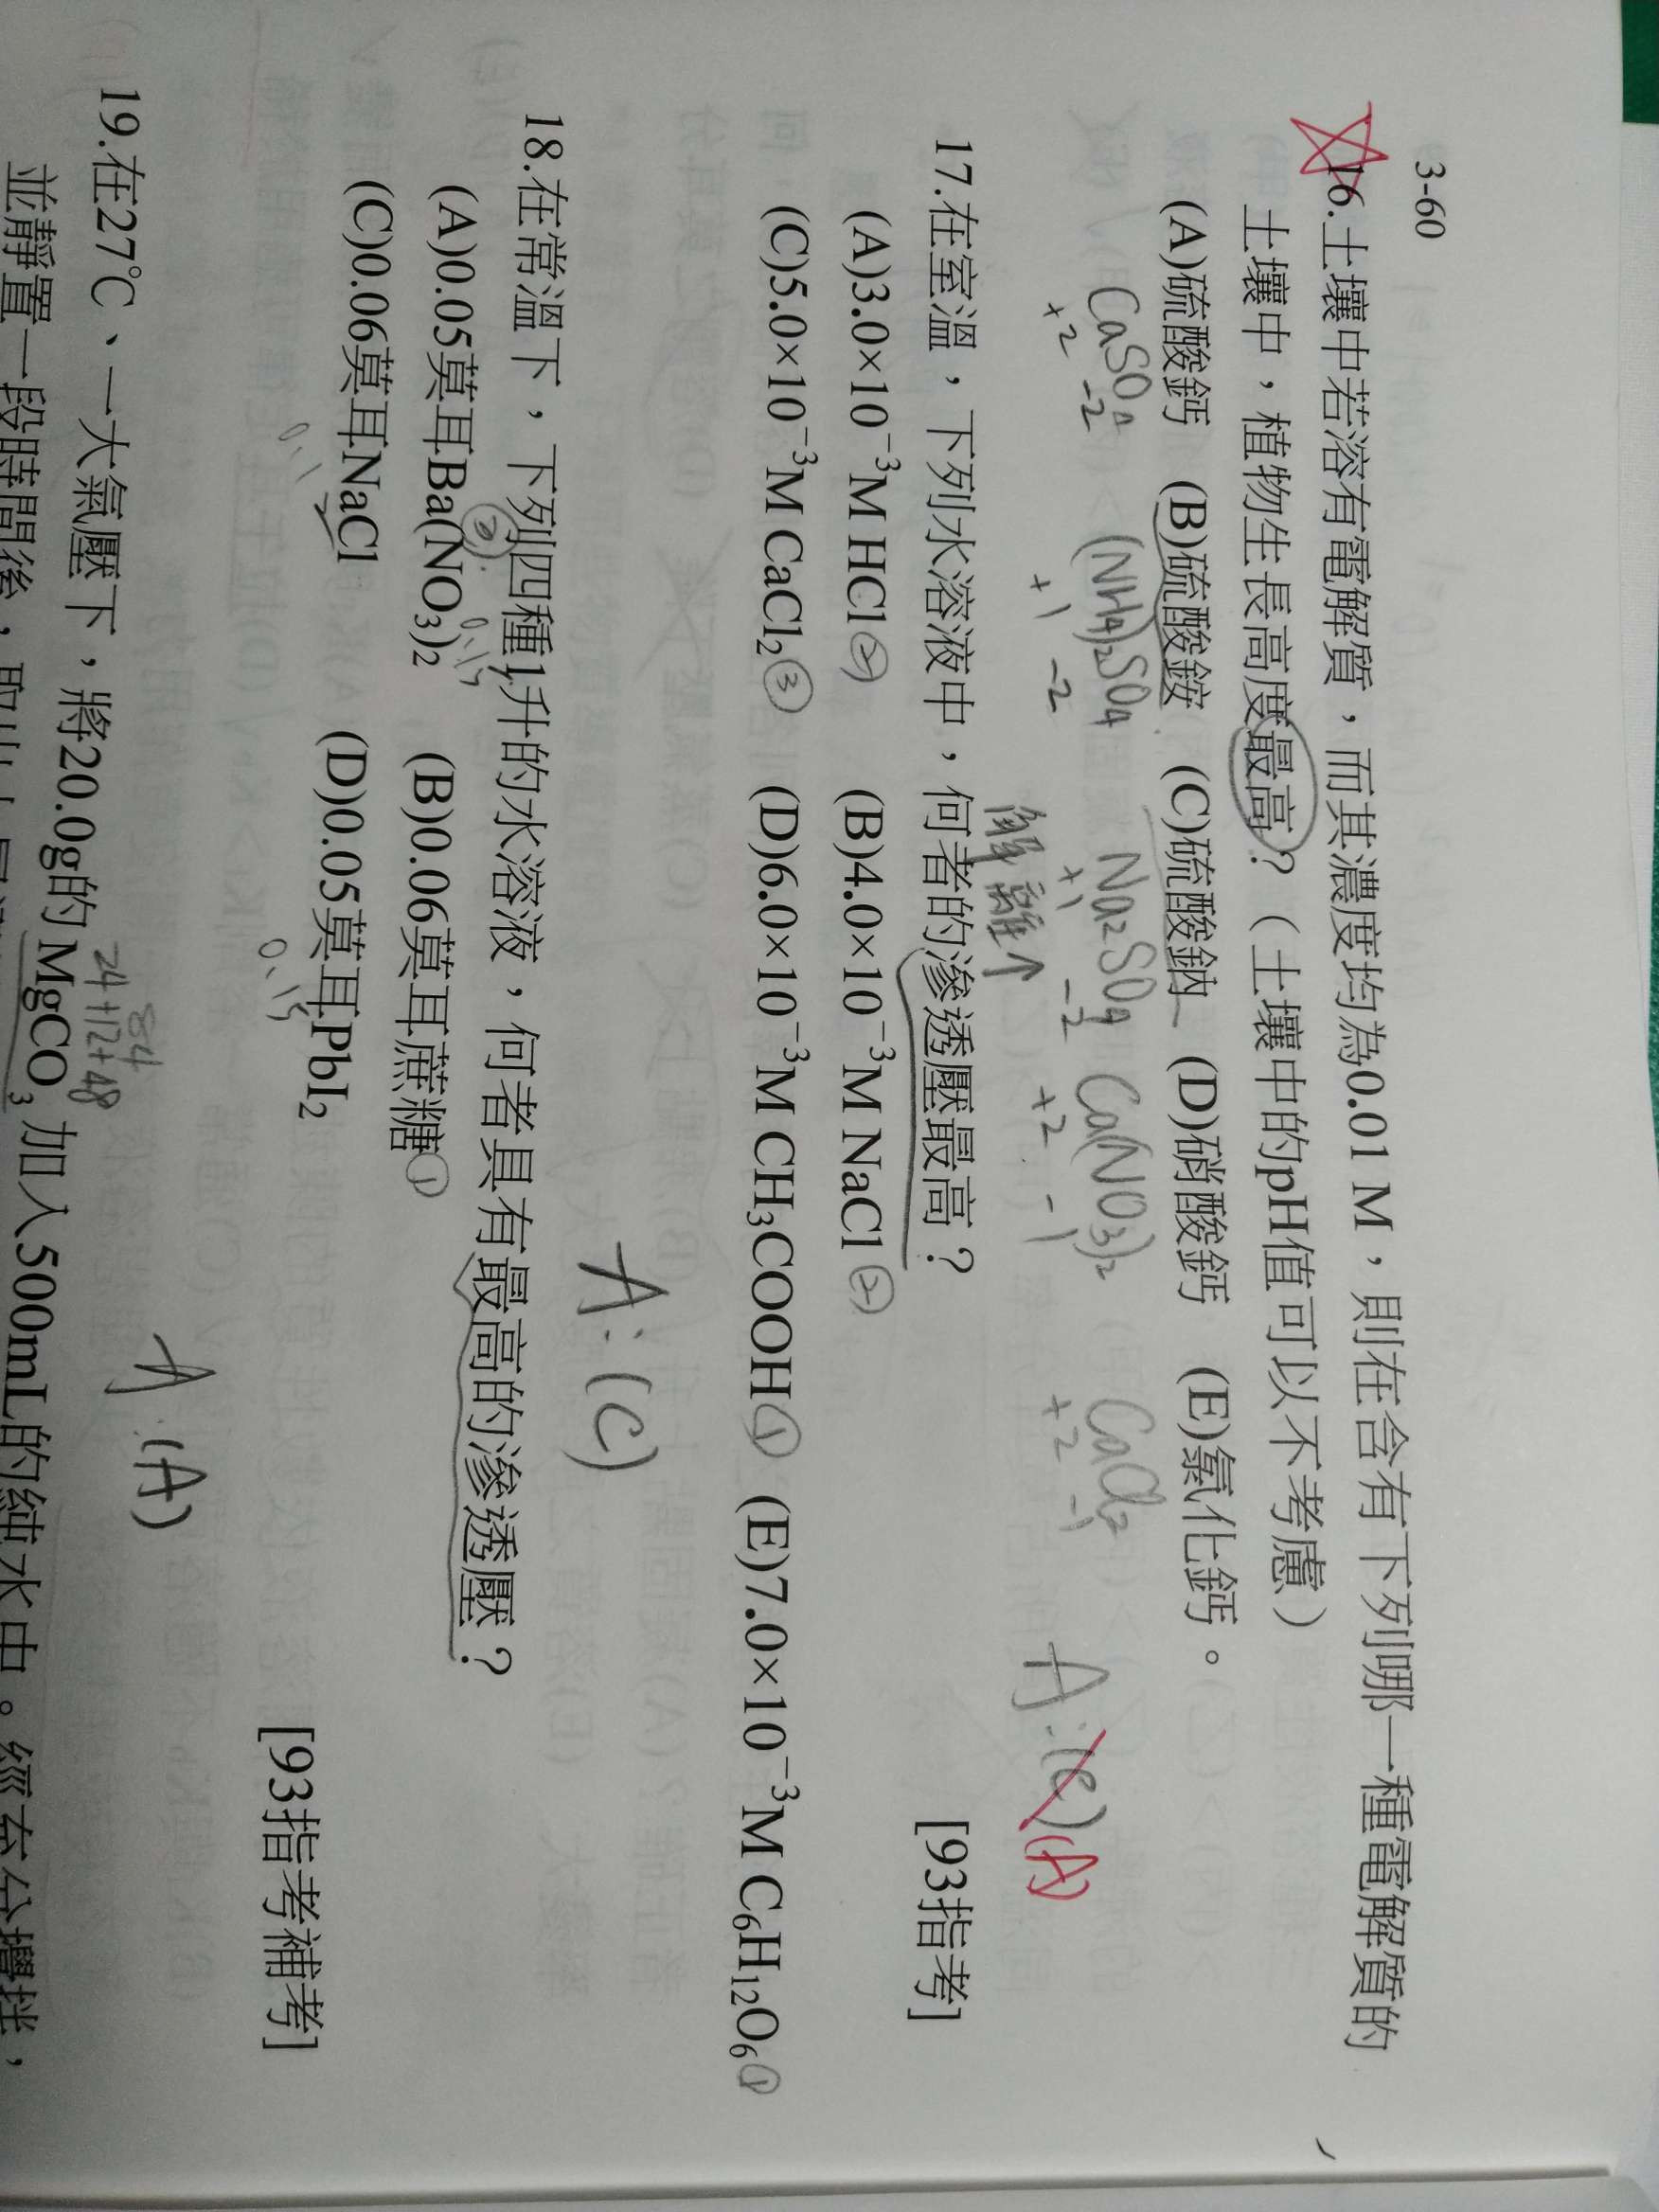 3-60
16.土壤中若溶有電解質，而其濃度均為0.01 M，則在含有下列哪一種電解質的
土壤中，植物生長高度最高？（土壤中的pH值可以不考慮）
(A)硫酸鈣 (B)硫酸銨 (C)硫酸鈉 (D)硝酸鈣 (E)氯化鈣。
CaSO4 (NH4)2SO4 Na2SO4 Ca(NO3)2 CaCl2
+2 -2 +1 -2 +1 -2 +2 -1 +2 -1
解離↑
A:(C) (A)
17.在室溫，下列水溶液中，何者的滲透壓最高？ [93指考]
(A)3.0×10⁻³M HCl② (B)4.0×10⁻³M NaCl②
(C)5.0×10⁻³M CaCl₂③ (D)6.0×10⁻³M CH₃COOH① (E)7.0×10⁻³M C₆H₁₂O₆①
A:(C)
18.在常溫下，下列四種1升的水溶液，何者具有最高的滲透壓？
③ 0.15
(A)0.05莫耳Ba(NO₃)₂ (B)0.06莫耳蔗糖①
(C)0.06莫耳NaCl (D)0.05莫耳PbI₂ [93指考補考]
2
0.1 0.15
A:(A)
84
24+12+48
19.在27℃、一大氣壓下，將20.0g的MgCO₃加入500mL的純水中。經充分攪拌，
並靜置一段時間後，取出